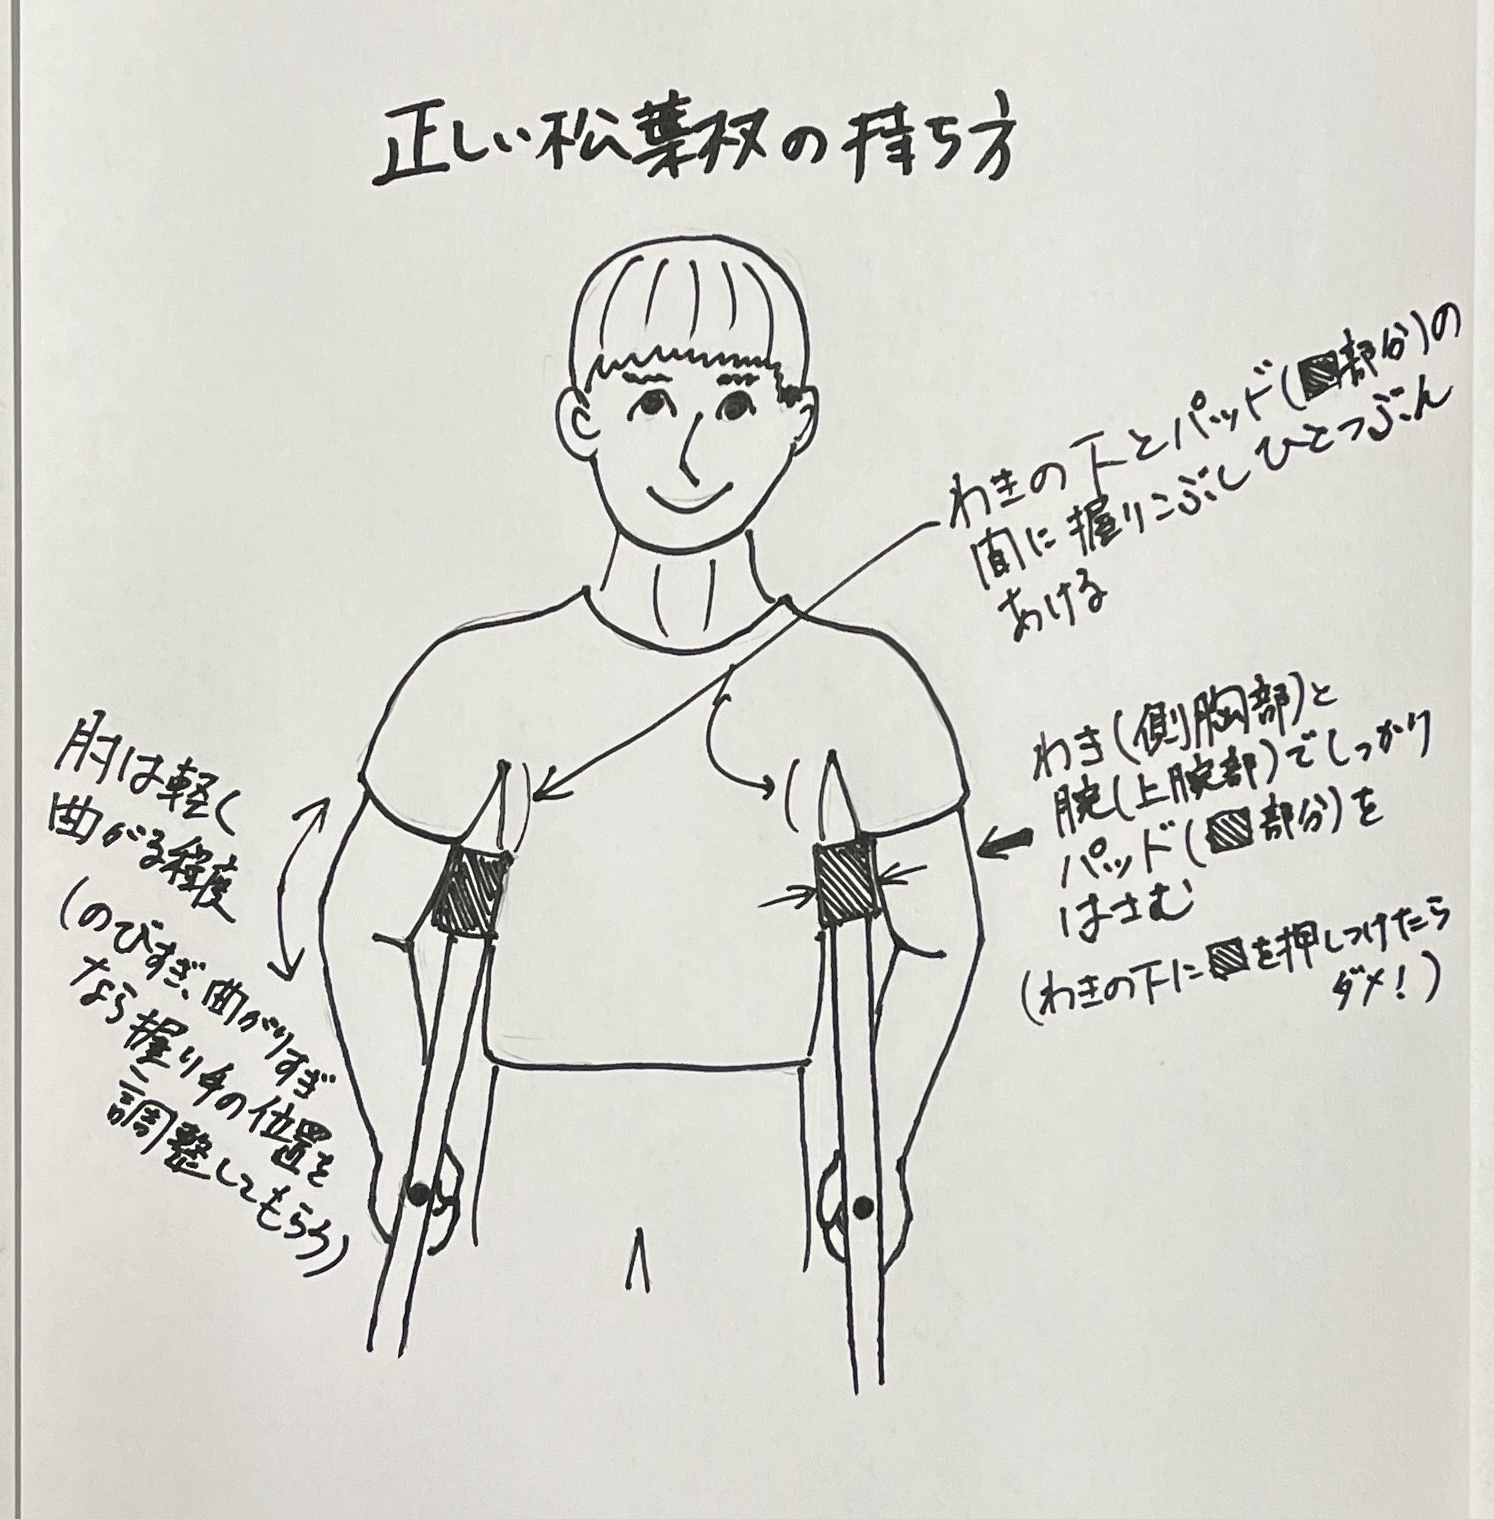 正しい松葉杖の持ち方
わきの下とパッド(▨部分)の
間に握りこぶしひとつぶん
あける
わき(側胸部)と
腕(上腕部)でしっかり
パッド(▨部分)を
はさむ
(わきの下に▨を押しつけたら
ダメ!)
肘は軽く
曲がる程度
(のびすぎ、曲がりすぎ
なら握り手の位置を
調整してもらう)